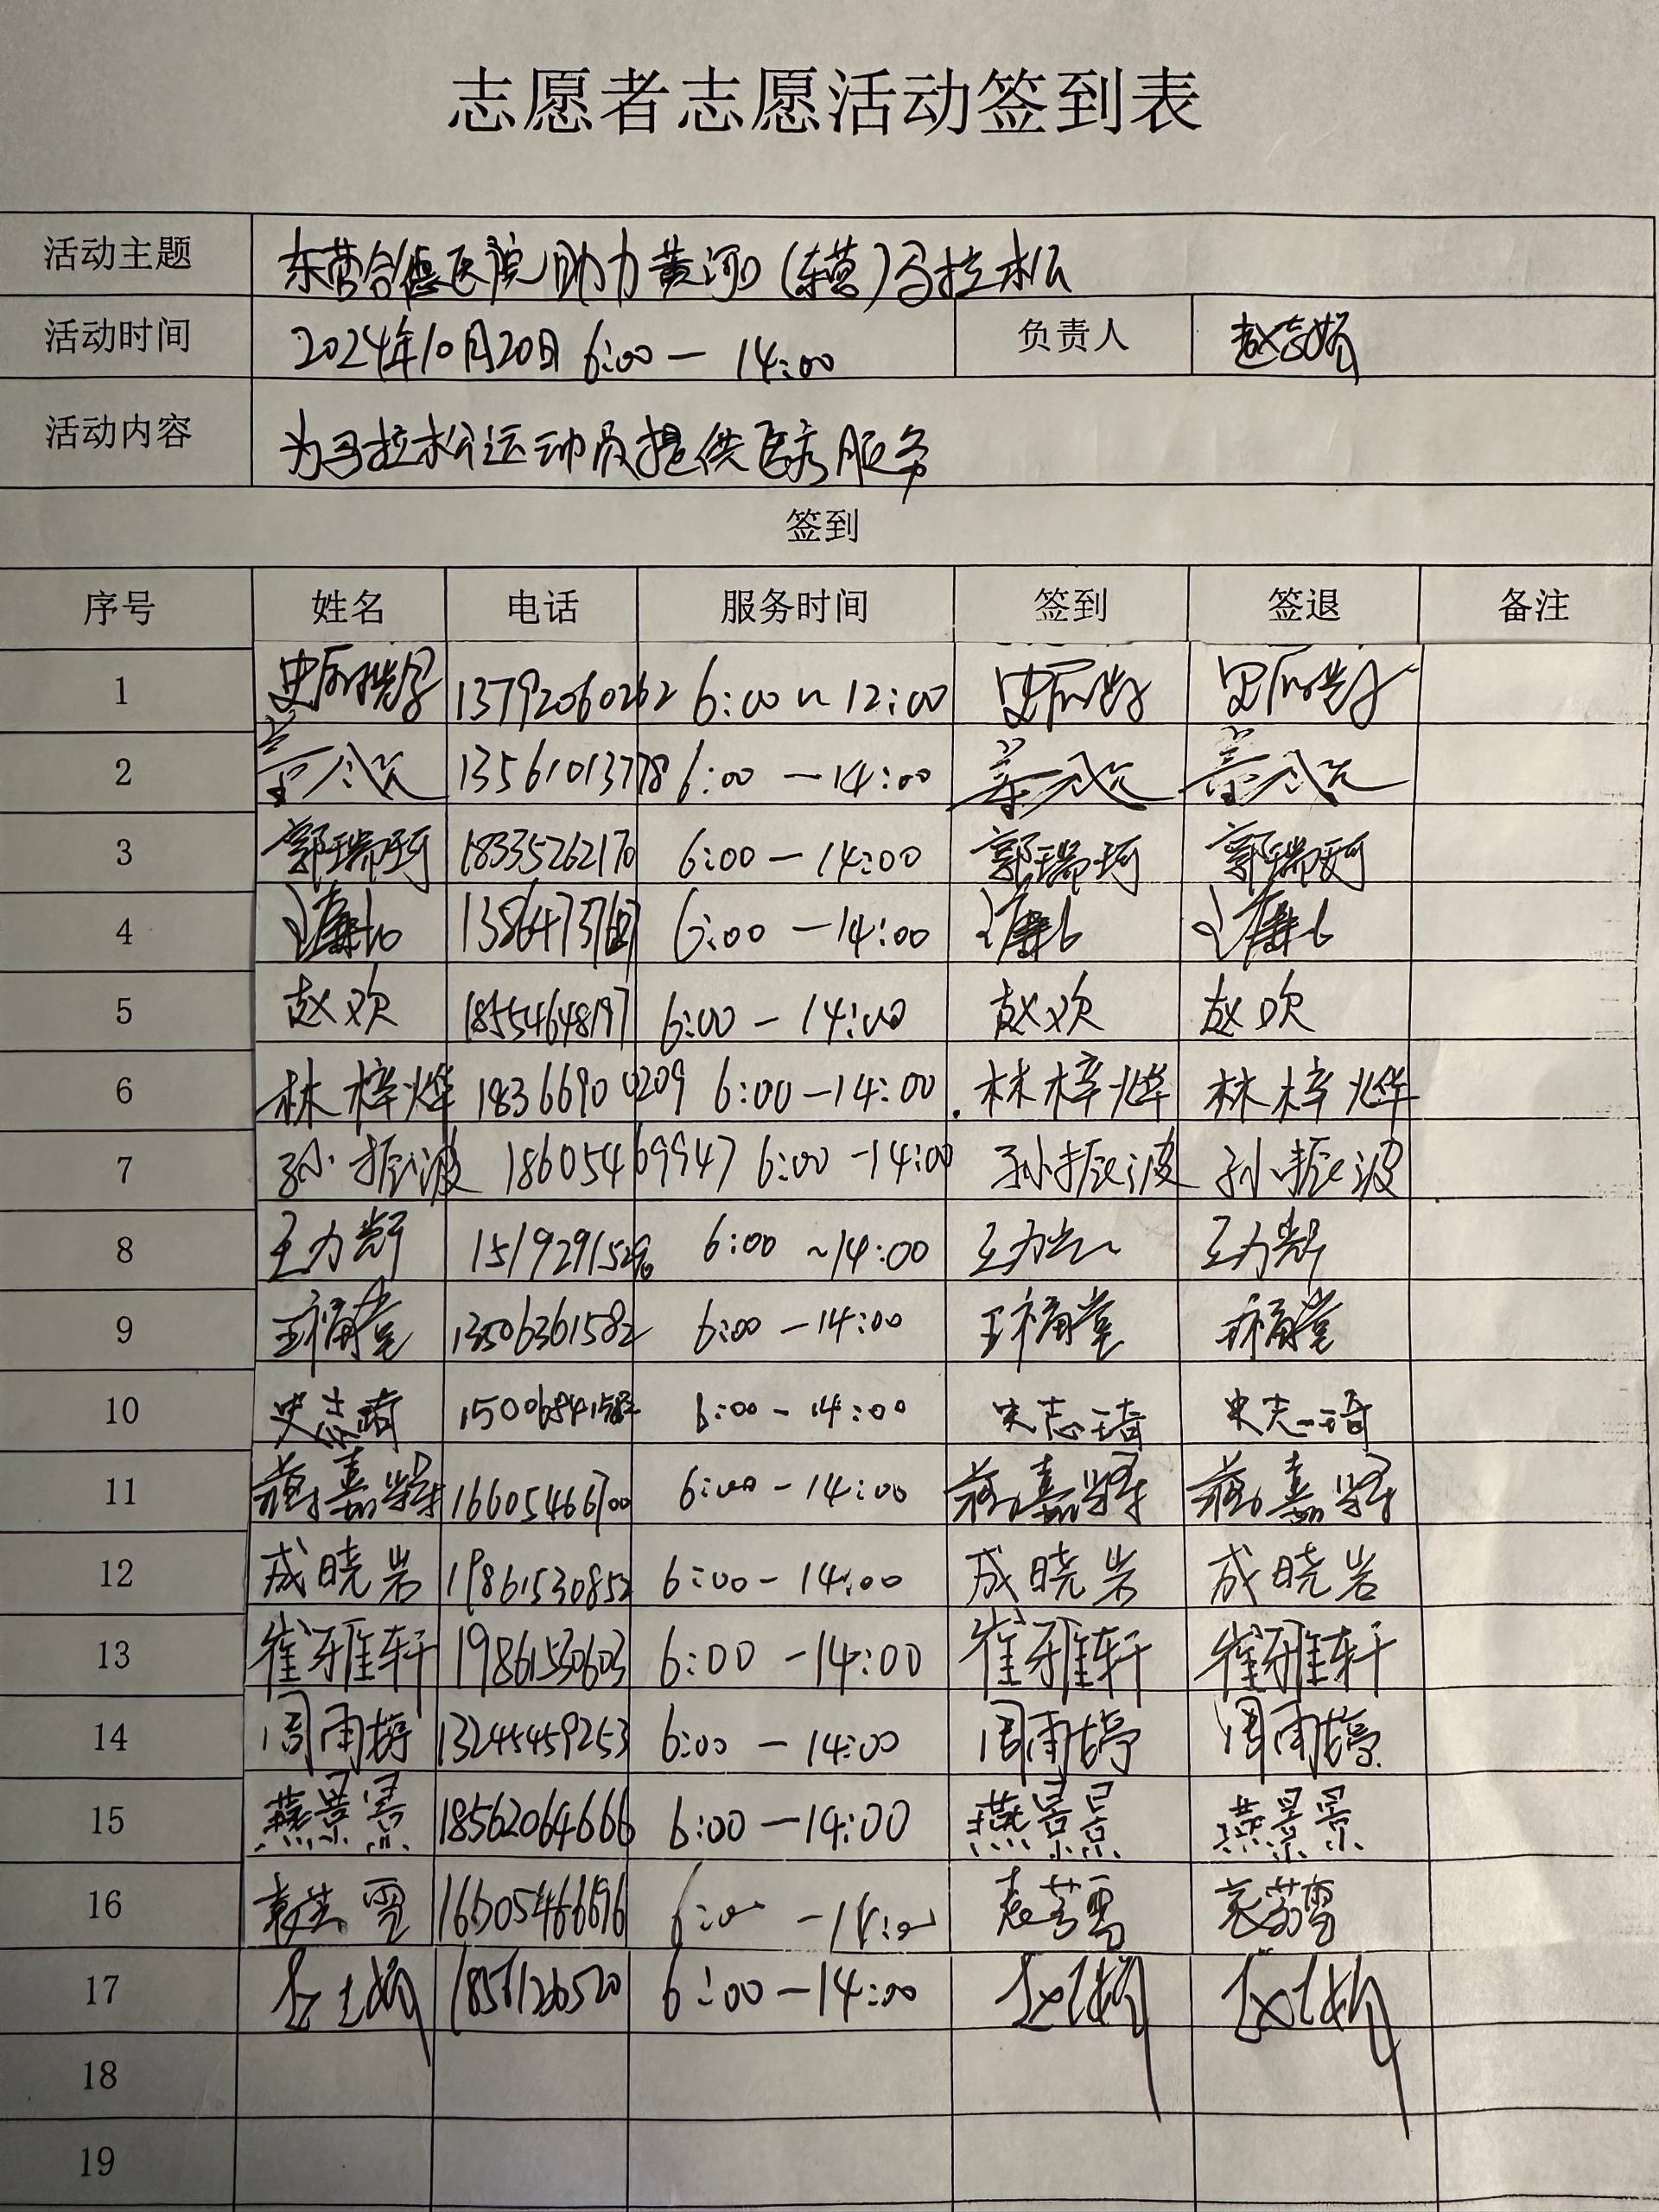 志愿者志愿活动签到表
活动主题 东营合德医院助力黄河口(东营)马拉松
活动时间 2024年10月20日 6:00 — 14:00 负责人
活动内容 为马拉松运动员提供医疗服务
签到
序号 姓名 电话 服务时间 签到 签退 备注
1 13792060262 6:00 ~ 12:00
2 13561013778 6:00 — 14:00
3 郭瑞珂 18335262170 6:00 — 14:00 郭瑞珂 郭瑞珂
4 6:00 — 14:00
5 赵欢 18554648197 6:00 — 14:00 赵欢 赵欢
6 林梓烨 18366900209 6:00 — 14:00 林梓烨 林梓烨
7 孙振波 18605469947 6:00 — 14:00 孙振波 孙振波
8 6:00 ~ 14:00
9 王福堂 13506361582 6:00 — 14:00 王福堂 王福堂
10 史志琦 6:00 — 14:00 史志琦 史志琦
11 16605466700 6:00 — 14:00
12 成晓岩 19861530852 6:00 — 14:00 成晓岩 成晓岩
13 崔雅轩 19861530603 6:00 — 14:00 崔雅轩 崔雅轩
14 周雨婷 13245459253 6:00 — 14:00 周雨婷 周雨婷
15 燕景景 18562064666 6:00 — 14:00 燕景景 燕景景
16 16605466696 6:00 — 14:00
17 6:00 — 14:00
18
19